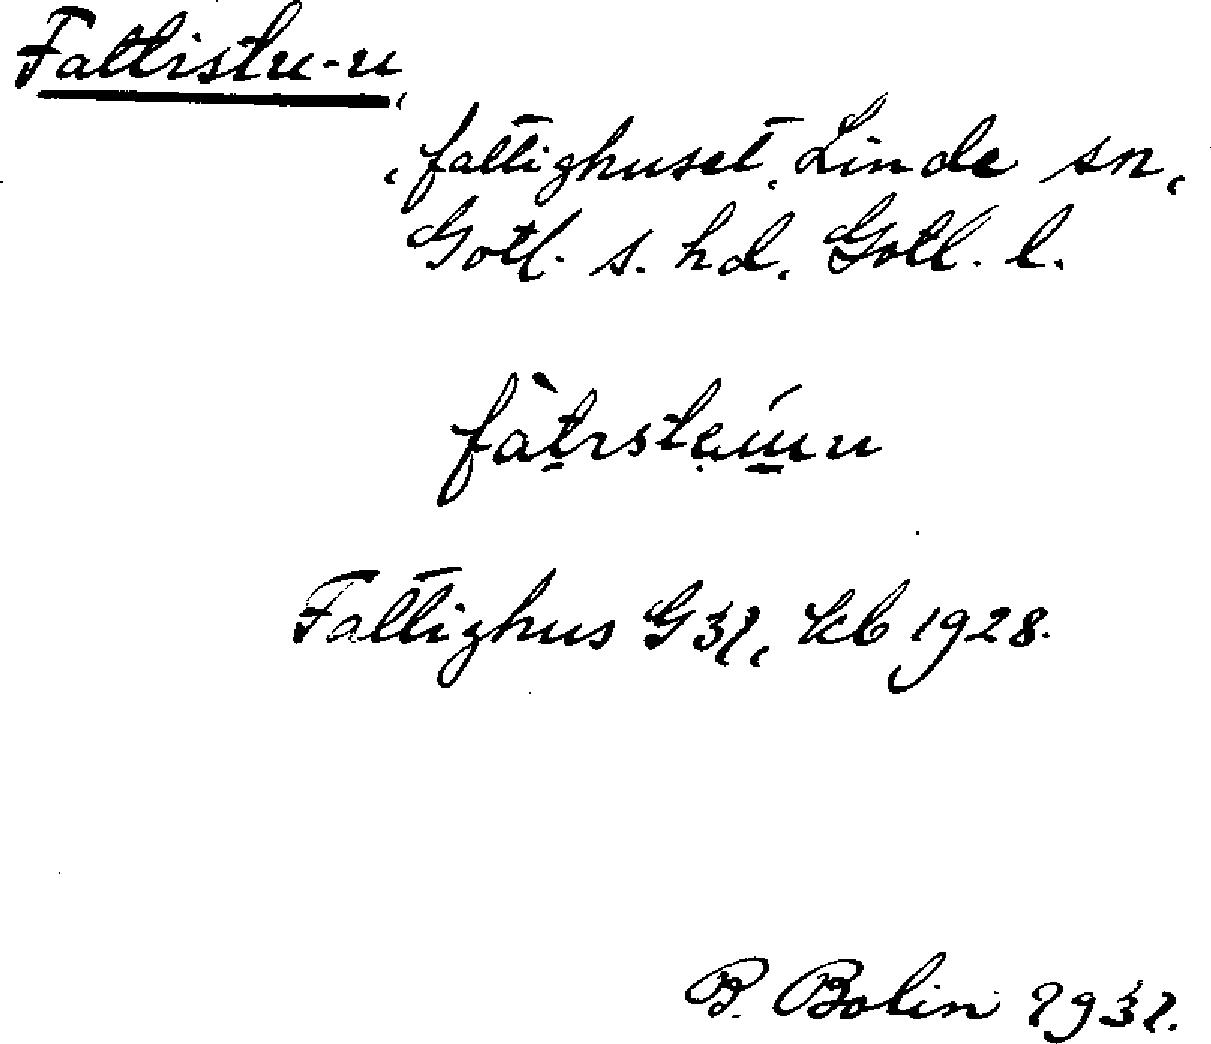 Fattistu-u,
, fattighuset, Linde sn,
Gotl. s. hd, Gotl. l.
Fattighus G 31, kb 1928.
B. Bolin 1931.